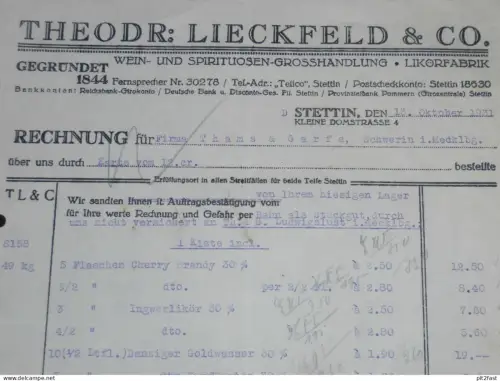 THEODR: LIECKFELD & CO.
WEIN- UND SPIRITUOSEN-GROSSHANDLUNG • LIKÖRFABRIK
GEGRÜNDET 1844
Fernsprecher Nr. 30278 / Tel.-Adr.: „Tellco“, Stettin / Postscheckkonto: Stettin 18631
Bankkonten: Reichsbank-Girokonto / Deutsche Bank u. Disconto-Ges. Fil. Stettin / Provinzialbank Pommern (Girozentrale) Stettin
STETTIN, DEN 13. Oktober 1931
KLEINE DOMSTRASSE 4
RECHNUNG für Firma Thams & Garfs, Schwerin i.Mecklbg.
über uns durch Karte vom 12.cr. bestellte
Erfüllungsort in allen Streitfällen für beide Teile Stettin
TL&C
von Ihrem hiesigen Lager
Wir sandten Ihnen lt. Auftragsbestätigung vom
für Ihre werte Rechnung und Gefahr per Bahn als Stückgut, durch
uns nicht versichert an Ludwigslust i.Mecklbg.
S158 1 Kiste inh.
49 kg 5 Flaschen Cherry Brandy 30 % à 2.50 12.50
3/2 " dto. per 2/2 à 2.80 8.40
3 " Ingwerlikör 30 % à 2.50 7.50
4/2 " dto. à 2.80 5.60
10 (4/2 Ltfl.) Danziger Goldwasser 30 % à 1.90 19.--